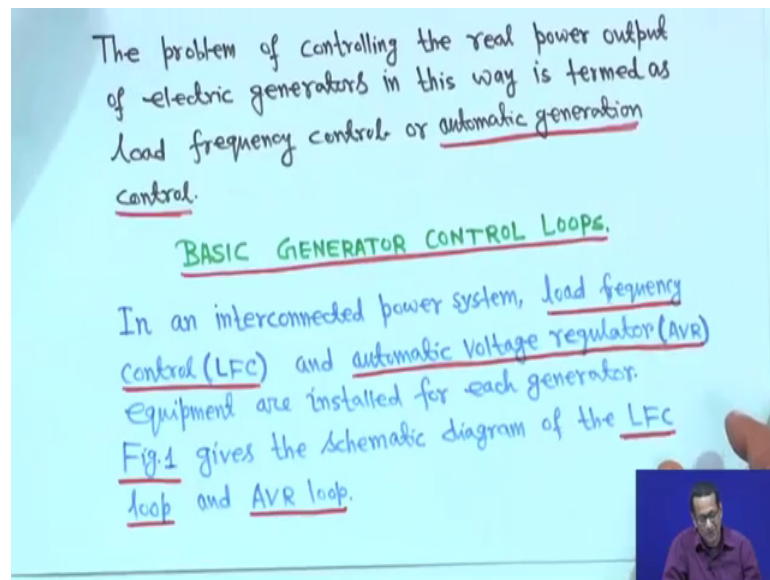 The problem of controlling the real power output
of electric generators in this way is termed as
load frequency control or automatic generation
control.
BASIC GENERATOR CONTROL LOOPS.
In an interconnected power system, load frequency
control (LFC) and automatic voltage regulator (AVR)
equipment are installed for each generator.
Fig.1 gives the schematic diagram of the LFC
loop and AVR loop.